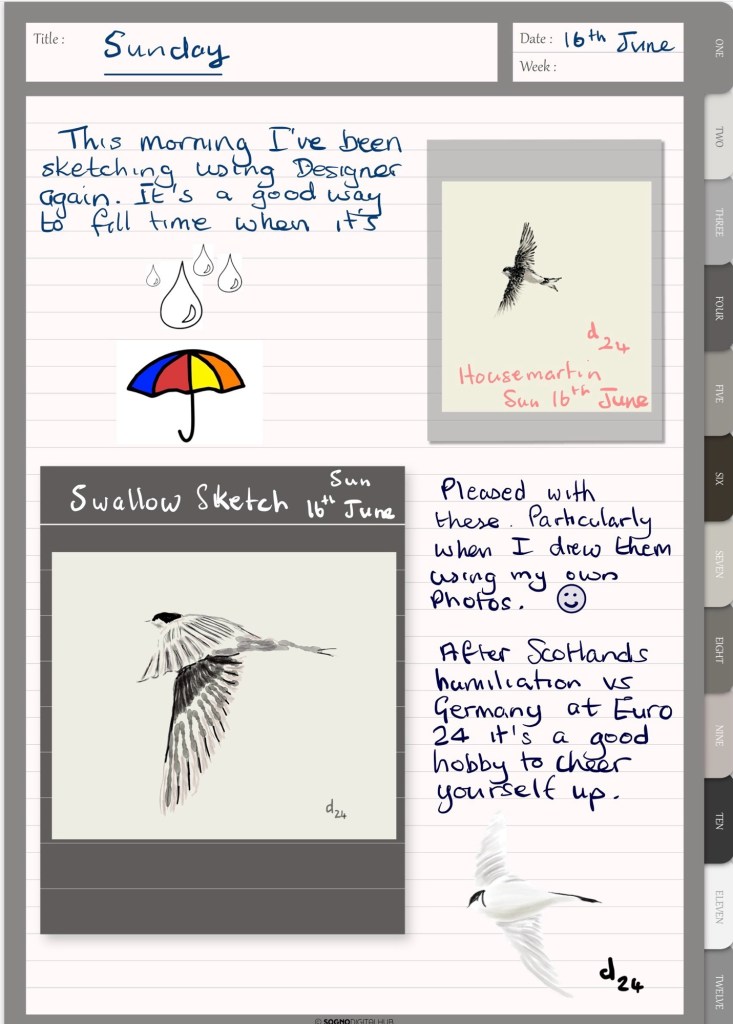 Title :
Sunday
Date : 16th June
Week :
This morning I've been
sketching using Designer
again. It's a good way
to fill time when it's
d24
Housemartin
Sun 16th June
Swallow Sketch Sun
16th June
d24
Pleased with
these. Particularly
when I drew them
using my own
Photos.
After Scotlands
humiliation vs
Germany at Euro
24 it's a good
hobby to cheer
yourself up.
d24
ONE
TWO
THREE
FOUR
FIVE
SIX
SEVEN
EIGHT
NINE
TEN
ELEVEN
TWELVE
© SOGNODIGITALHUB